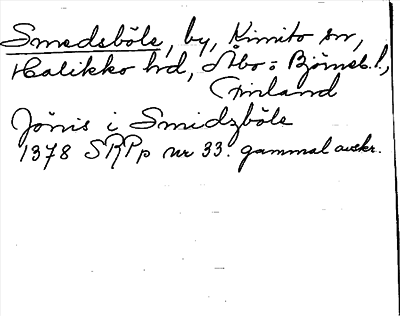 Smedsböle, by, Kimito sn,
Halikko hd, Åbo = Björneb. l.,
Finland
Jönis i Smidzböle
1378 SRPp nr 33. gammal avskr.